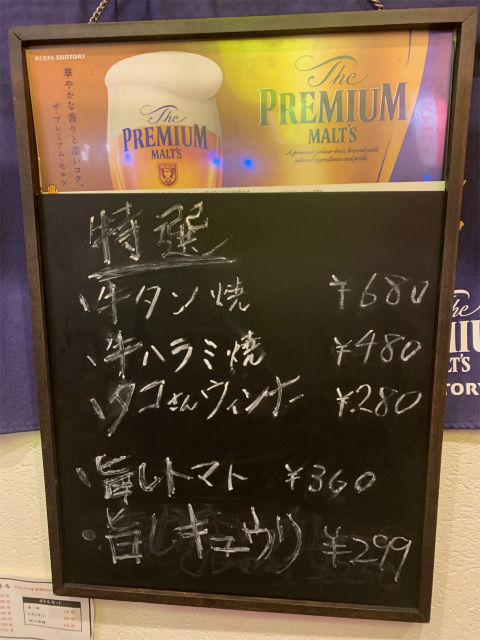 水と生きる SUNTORY
華やかな香りと深いコク。
ザ・プレミアム・モルツ
The
PREMIUM
MALT'S
The
PREMIUM
MALT'S
A premium pilsner beer, brewed with
selected ingredients and pride.
特選
・牛タン焼 ¥680
・牛ハラミ焼 ¥480
・タコさんウィンナー ¥280
・旨しトマト ¥360
・旨しキュウリ ¥299
ボトルセット